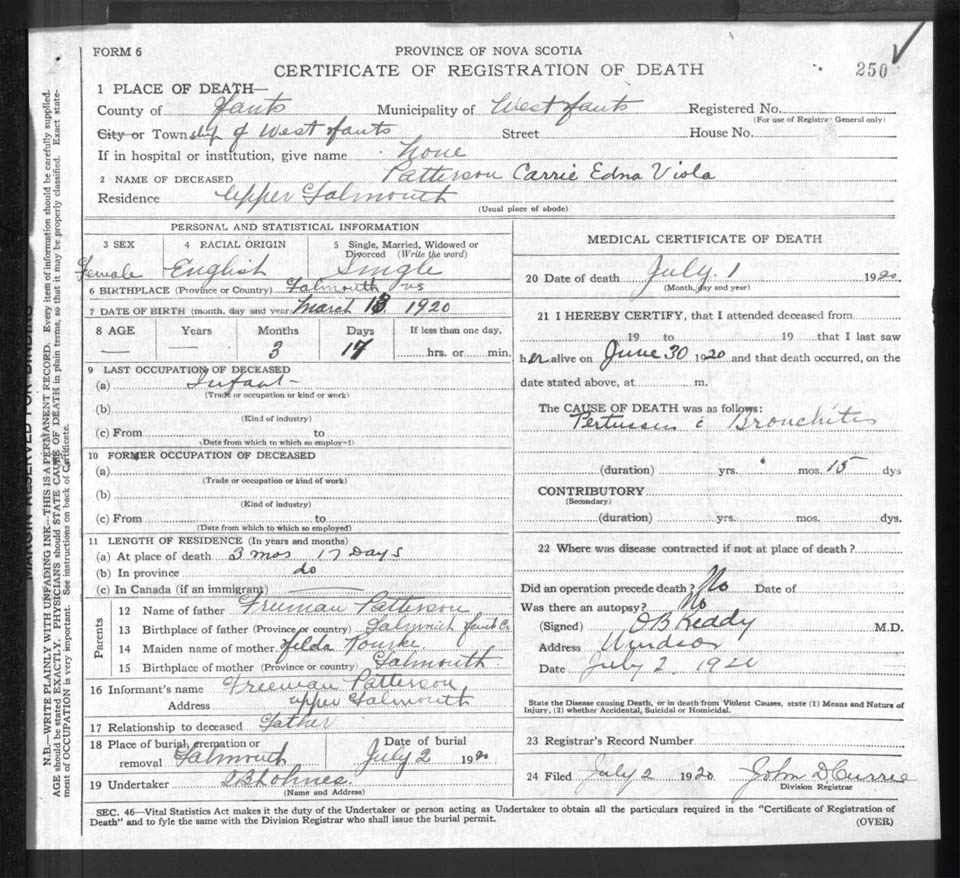 FORM 6
PROVINCE OF NOVA SCOTIA
CERTIFICATE OF REGISTRATION OF DEATH
250
1 PLACE OF DEATH—
County of Hants Municipality of West Hants Registered No.
(For use of Registrar General only)
City or Town of West Hants Street House No.
If in hospital or institution, give name None
2 NAME OF DECEASED Patterson Carrie Edna Viola
Residence Upper Falmouth
(Usual place of abode)
PERSONAL AND STATISTICAL INFORMATION
3 SEX 4 RACIAL ORIGIN 5 Single, Married, Widowed or Divorced (Write the word)
Female English Single
6 BIRTHPLACE (Province or Country) Falmouth NS
7 DATE OF BIRTH (month, day and year) March 13 1920
8 AGE Years Months Days If less than one day,
— — 3 17 hrs. or min.
9 LAST OCCUPATION OF DECEASED
(a) Infant —
(Trade or occupation or kind or work)
(b)
(Kind of industry)
(c) From to
(Date from which to which so employed)
10 FORMER OCCUPATION OF DECEASED
(a)
(Trade or occupation or kind of work)
(b)
(Kind of industry)
(c) From to
(Date from which to which so employed)
11 LENGTH OF RESIDENCE (In years and months)
(a) At place of death 3 mos 17 Days
(b) In province do
(c) In Canada (if an immigrant) —
Parents
12 Name of father Freeman Patterson
13 Birthplace of father (Province or country) Falmouth Hants Co
14 Maiden name of mother Hilda Rourke
15 Birthplace of mother (Province or country) Falmouth
16 Informant's name Freeman Patterson
Address upper Falmouth
17 Relationship to deceased Father
18 Place of burial, cremation or removal Falmouth Date of burial July 2 1920
19 Undertaker
(Name and Address)
MEDICAL CERTIFICATE OF DEATH
20 Date of death July 1 1920
(Month, day and year)
21 I HEREBY CERTIFY, that I attended deceased from
19 to 19 that I last saw
her alive on June 30 1920 and that death occurred, on the
date stated above, at m.
The CAUSE OF DEATH was as follows:
Pertussis c Bronchitis
(duration) yrs. mos. 15 dys
CONTRIBUTORY
(Secondary)
(duration) yrs. mos. dys.
22 Where was disease contracted if not at place of death?
Did an operation precede death? No Date of
Was there an autopsy? No
(Signed) O B Keddy M.D.
Address Windsor
Date July 2 1920
State the Disease causing Death, or in death from Violent Causes, state (1) Means and Nature of
Injury, (2) whether Accidental, Suicidal or Homicidal.
23 Registrar's Record Number
24 Filed July 2 1920 John D. Currie
Division Registrar
SEC. 46—Vital Statistics Act makes it the duty of the Undertaker or person acting as Undertaker to obtain all the particulars required in the "Certificate of Registration of
Death" and to fyle the same with the Division Registrar who shall issue the burial permit.
(OVER)
MARGIN RESERVED FOR BINDING
N.B.—WRITE PLAINLY WITH UNFADING INK—THIS IS A PERMANENT RECORD. Every item of information should be carefully supplied.
AGE should be stated EXACTLY. PHYSICIANS should STATE CAUSE OF DEATH in plain terms, so that it may be properly classified. Exact state-
ment of OCCUPATION is very important. See instructions on back of Certificate.